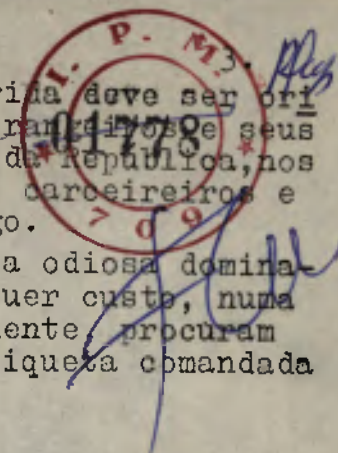 I. P. M.
3.
rida deve ser ori
rangeiros e seus
01778
da República, nos
carcereiros e
go.
709
a odiosa domina-
quer custo, numa
mente, procuram
iqueta comandada